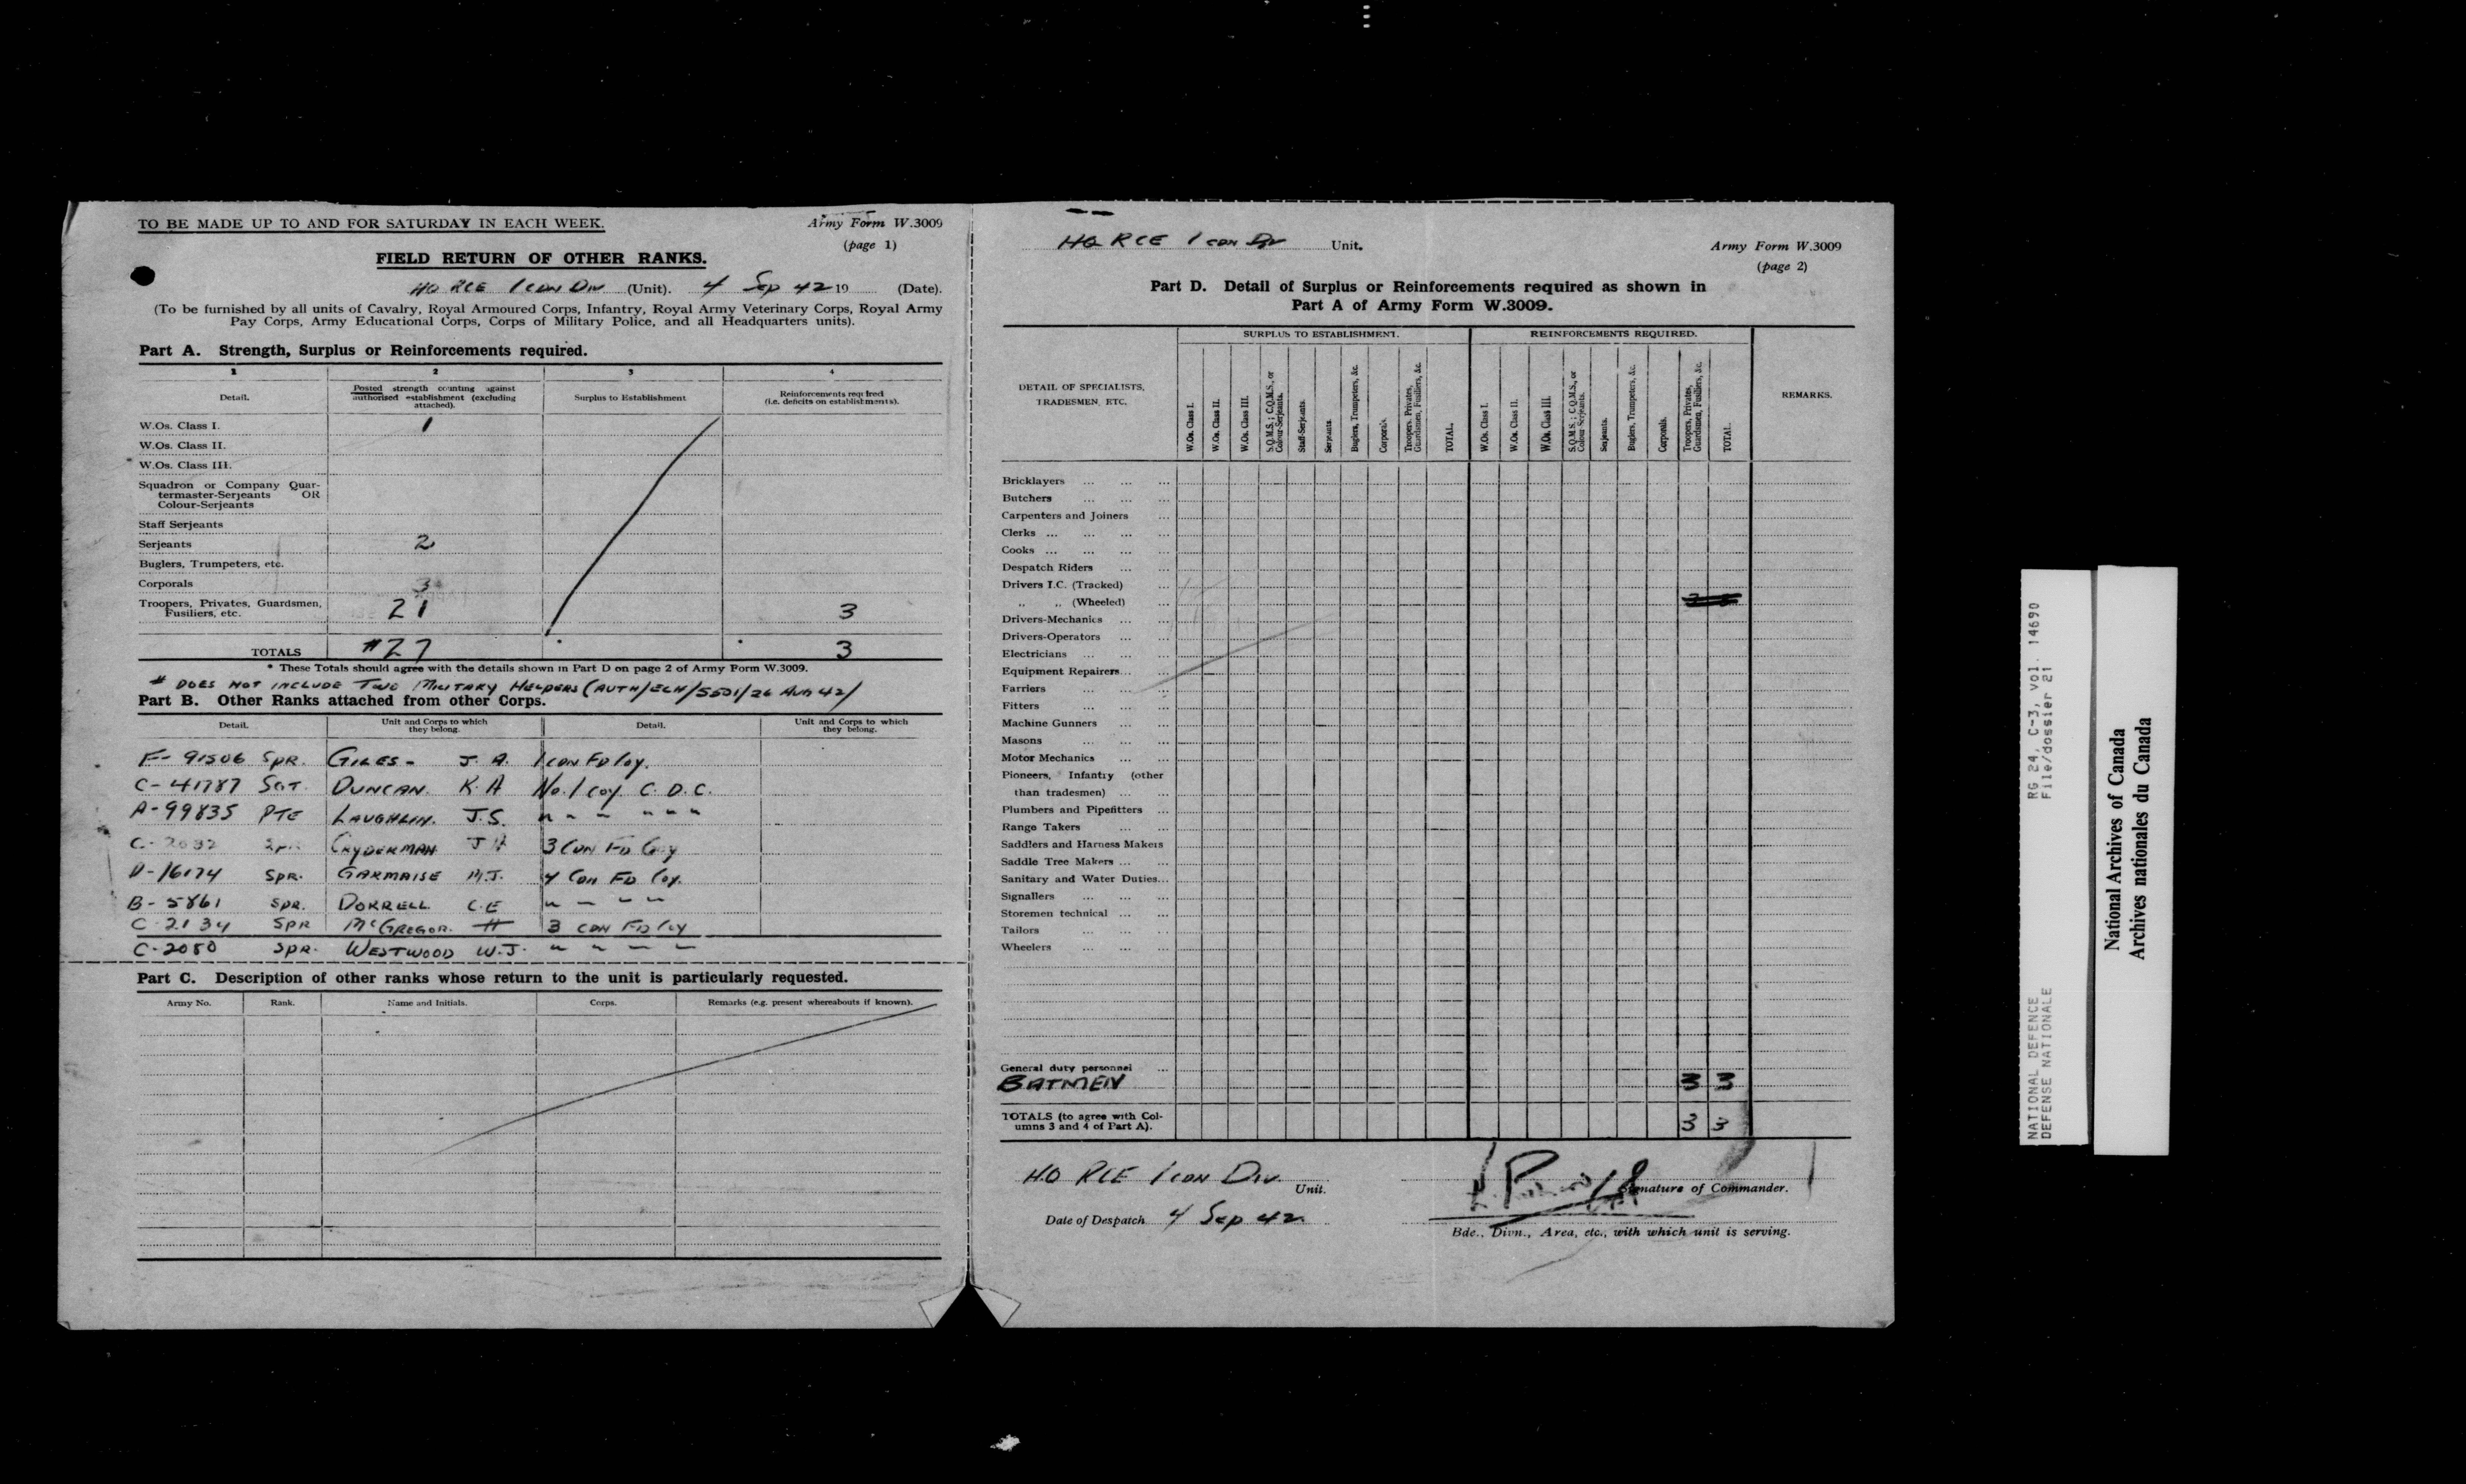 TO BE MADE UP TO AND FOR SATURDAY IN EACH WEEK.
Army Form W.3009
(page 1)
FIELD RETURN OF OTHER RANKS.
HQ RCE 1 CDN DIV (Unit). 4 Sep 42 19 (Date).
(To be furnished by all units of Cavalry, Royal Armoured Corps, Infantry, Royal Army Veterinary Corps, Royal Army
Pay Corps, Army Educational Corps, Corps of Military Police, and all Headquarters units).
Part A. Strength, Surplus or Reinforcements required.
1 2 3 4
Detail.
Posted strength counting against
authorised establishment (excluding
attached).
Surplus to Establishment
Reinforcements required
(i.e. deficits on establishments).
W.Os. Class I. 1
W.Os. Class II.
W.Os. Class III.
Squadron or Company Quar-
termaster-Serjeants OR
Colour-Serjeants
Staff Serjeants
Serjeants 2
Buglers, Trumpeters, etc.
Corporals 3
Troopers, Privates, Guardsmen,
Fusiliers, etc. 21 3
TOTALS #27 * * 3
* These Totals should agree with the details shown in Part D on page 2 of Army Form W.3009.
# DOES NOT INCLUDE TWO MILITARY HELPERS (AUTH/ECH/5501/26 AUG 42/
Part B. Other Ranks attached from other Corps.
Detail.
Unit and Corps to which
they belong.
Detail.
Unit and Corps to which
they belong.
F-91506 SPR. GILES- J. A. 1 CDN FD Coy.
C-41787 SGT. DUNCAN. K. A No. 1 Coy. C. D. C.
A-99835 PTE LAUGHLIN. J.S. " " " " " "
C- SPR CRYDERMAN J H 3 CDN FD Coy
D-16174 SPR. GARMAISE M.J. 4 CDN FD Coy.
B-5861 SPR. DORRELL C.E " " " "
C-2134 SPR McGREGOR. H 3 CDN FD Coy
C-2050 SPR. WESTWOOD W.J. " " " "
Part C. Description of other ranks whose return to the unit is particularly requested.
Army No. Rank. Name and Initials. Corps. Remarks (e.g. present whereabouts if known).
HQ RCE 1 CDN DIV Unit.
Army Form W.3009
(page 2)
Part D. Detail of Surplus or Reinforcements required as shown in
Part A of Army Form W.3009.
DETAIL OF SPECIALISTS,
TRADESMEN, ETC.
SURPLUS TO ESTABLISHMENT.
W.Os. Class I.
W.Os. Class II.
W.Os. Class III.
S.Q.M.S.; C.Q.M.S., or
Colour-Serjeants.
Staff-Serjeants.
Serjeants.
Buglers, Trumpeters, &c.
Corporals.
Troopers, Privates,
Guardsmen, Fusiliers, &c.
TOTAL.
REINFORCEMENTS REQUIRED.
W.Os. Class I.
W.Os. Class II.
W.Os. Class III.
S.Q.M.S.; C.Q.M.S., or
Colour Serjeants.
Serjeants.
Buglers, Trumpeters, &c.
Corporals.
Troopers, Privates,
Guardsmen, Fusiliers, &c.
TOTAL.
REMARKS.
Bricklayers ... ... ...
Butchers ... ... ...
Carpenters and Joiners ...
Clerks ... ... ... ...
Cooks ... ... ... ...
Despatch Riders ... ...
Drivers I.C. (Tracked) ...
,, ,, (Wheeled) ...
Drivers-Mechanics ... ...
Drivers-Operators ... ...
Electricians ... ... ...
Equipment Repairers... ...
Farriers ... ...
Fitters ... ... ...
Machine Gunners ... ...
Masons ... ... ...
Motor Mechanics ... ...
Pioneers, Infantry (other
than tradesmen) ... ...
Plumbers and Pipefitters ...
Range Takers ... ...
Saddlers and Harness Makers
Saddle Tree Makers ... ...
Sanitary and Water Duties...
Signallers ... ... ...
Storemen technical ... ...
Tailors ... ... ...
Wheelers ... ... ...
General duty personnel ...
BATMEN 3 3
TOTALS (to agree with Col-
umns 3 and 4 of Part A). 3 3
HQ RCE 1 CDN DIV. Unit.
Signature of Commander.
Date of Despatch 4 Sep 42
Bde., Divn., Area, etc., with which unit is serving.
NATIONAL DEFENCE RG 24, C-3, vol. 14690
DEFENSE NATIONALE File/dossier 21
National Archives of Canada
Archives nationales du Canada